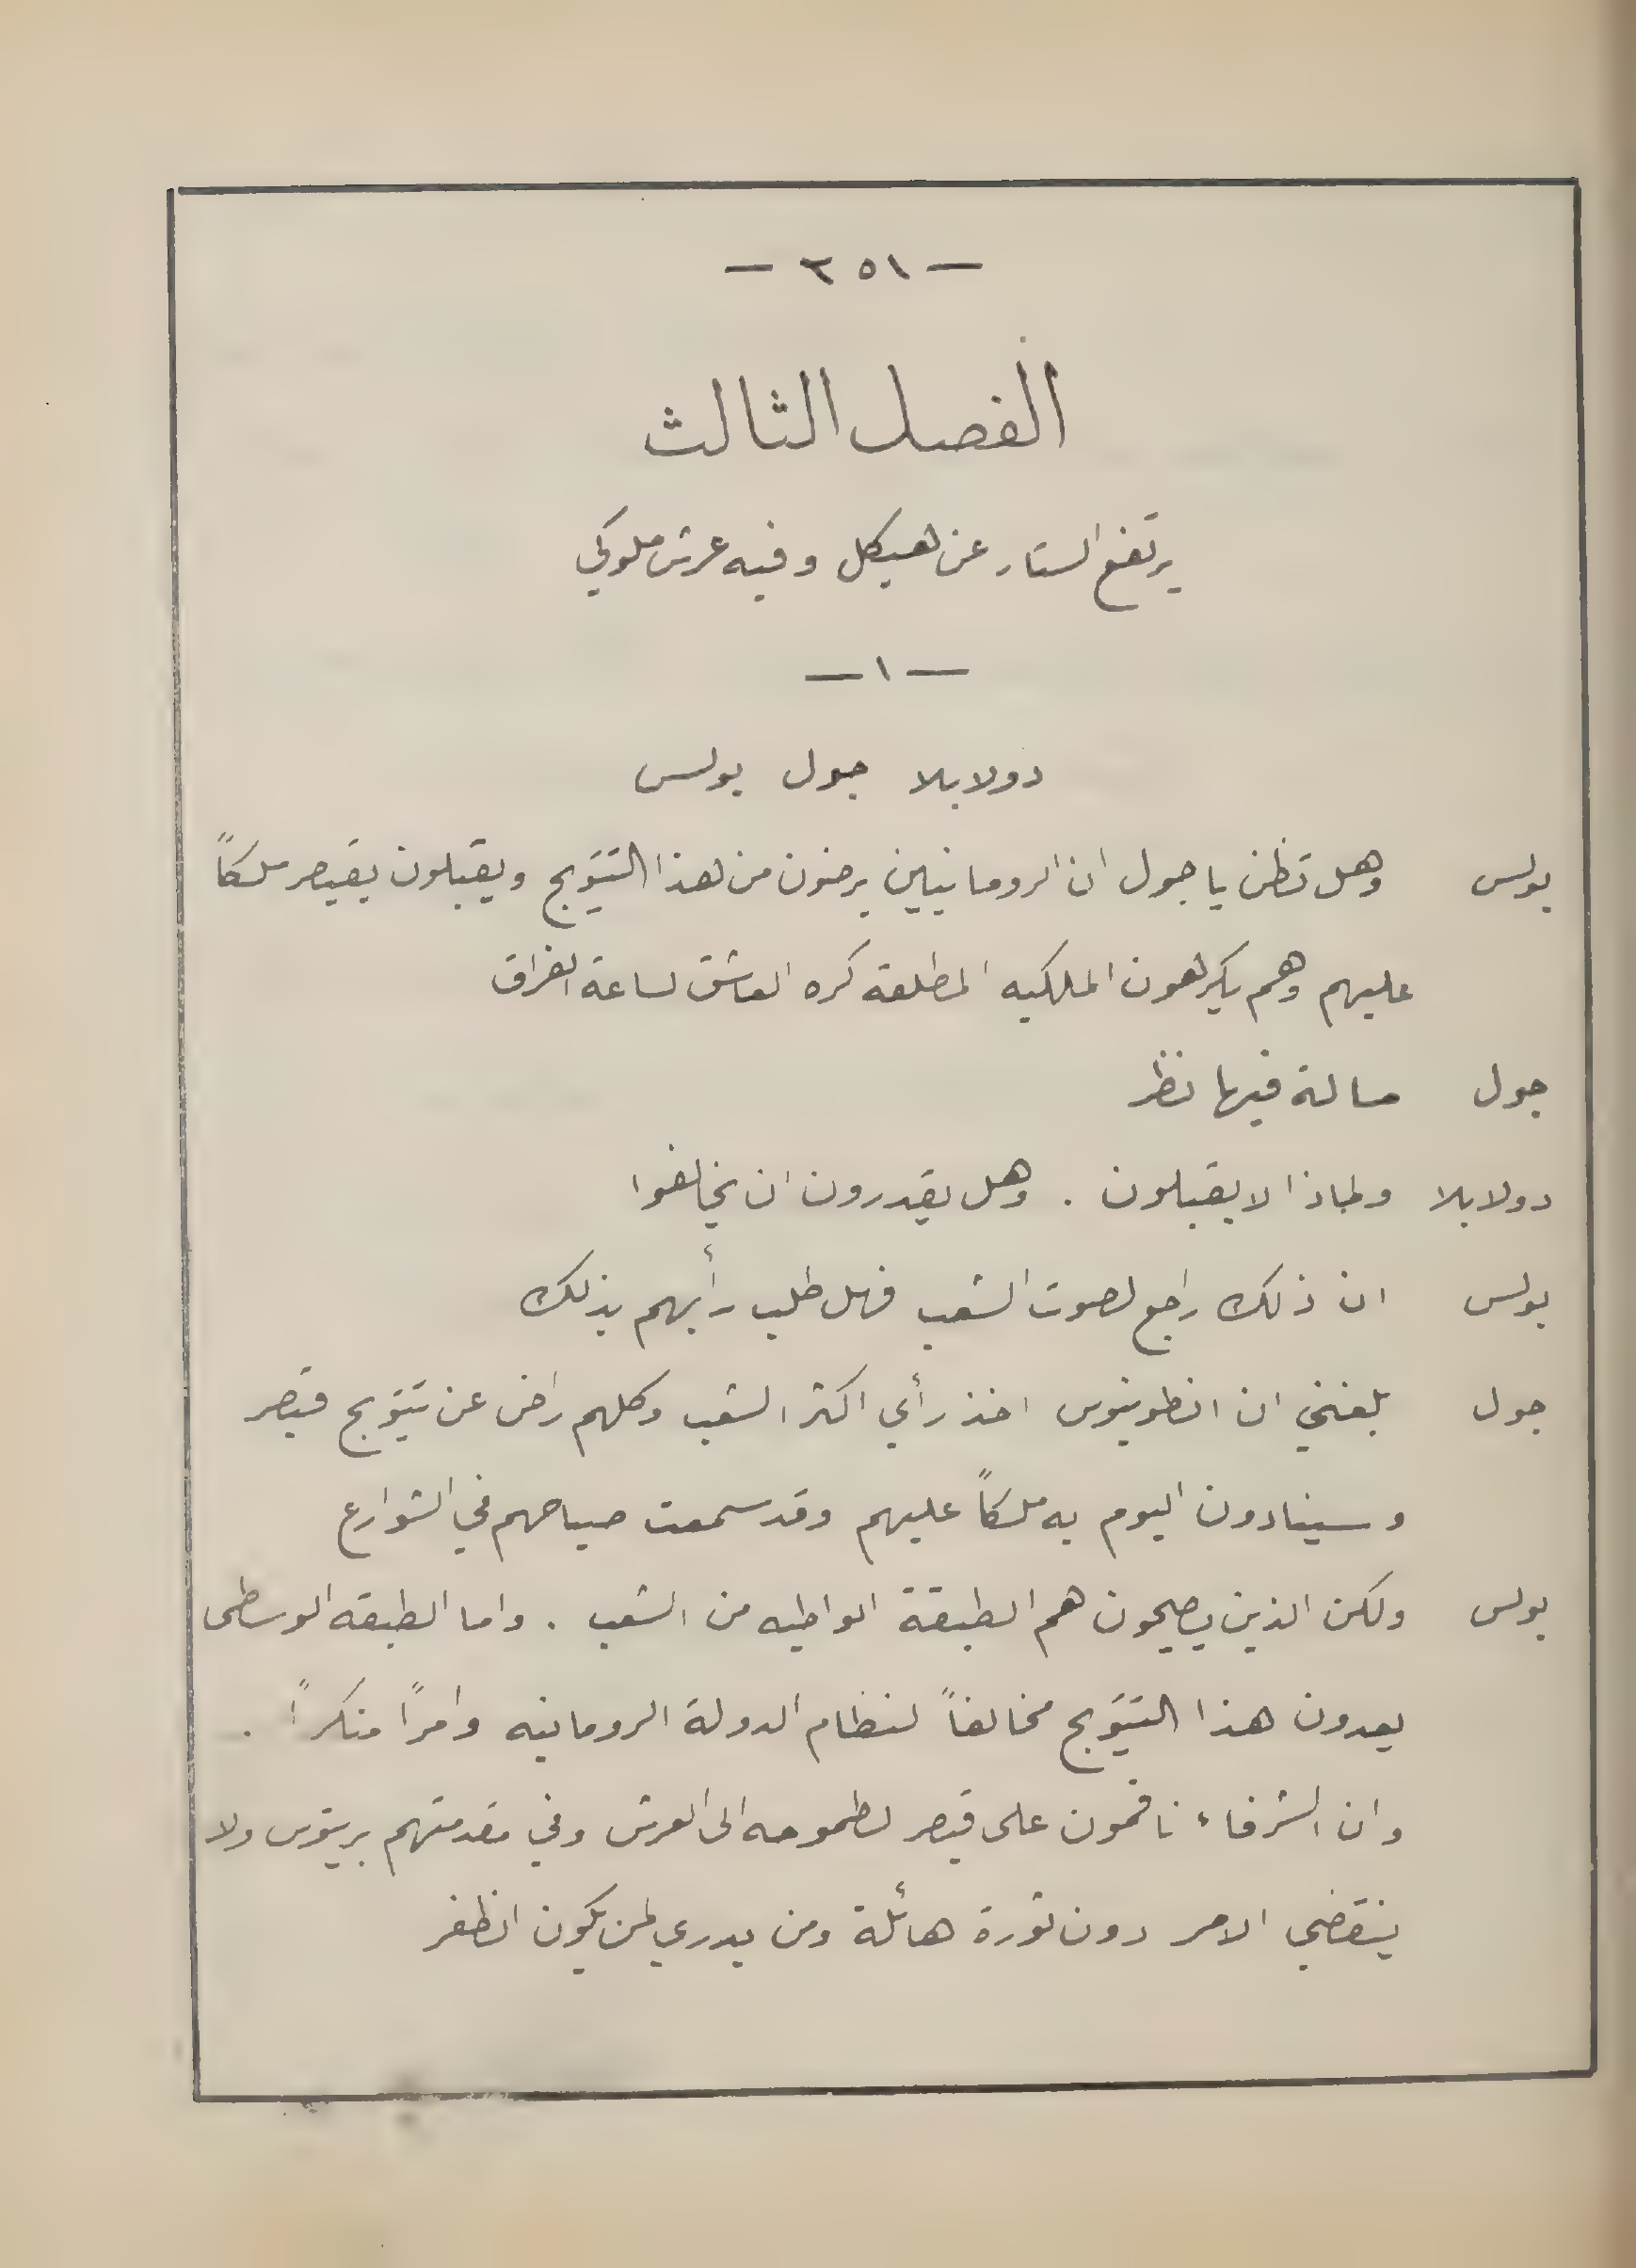 — ٣٥١ —
الفصل الثالث
يرتفع الستار عن هيكل وفيه عرش ملوكي
— ١ —
دولابلا جول بولس
بولس وهل تظن يا جول ان الرومانيين يرضون من هذا التتويج ويقبلون بقيصر ملكاً
عليهم وهم يكرهون الملكيه المطلقة كره العاشق لساعة الفراق
جول مسالة فيها نظر
دولابلا ولماذا لا يقبلون . وهل يقدرون ان يخالفوا
بولس ان ذلك راجع لصوت الشعب فهل طلب رأيهم بذلك
جول بلغني ان انطونيوس اخذ رأي اكثر الشعب وكلهم راض عن تتويج قيصر
وسينادون اليوم به ملكاً عليهم وقد سمعت صياحهم في الشوارع
بولس ولكن الذين يصيحون هم الطبقة الواطيه من الشعب . واما الطبقه الوسطى
يعدون هذا التتويج مخالفاً لنظام الدولة الرومانيه وامراً منكراً .
وان الشرفاء ناقمون على قيصر لطموحه الى العرش وفي مقدمتهم بريتوس ولا
ينقضي الامر دون ثورة هائلة ومن يدري لمن يكون الظفر